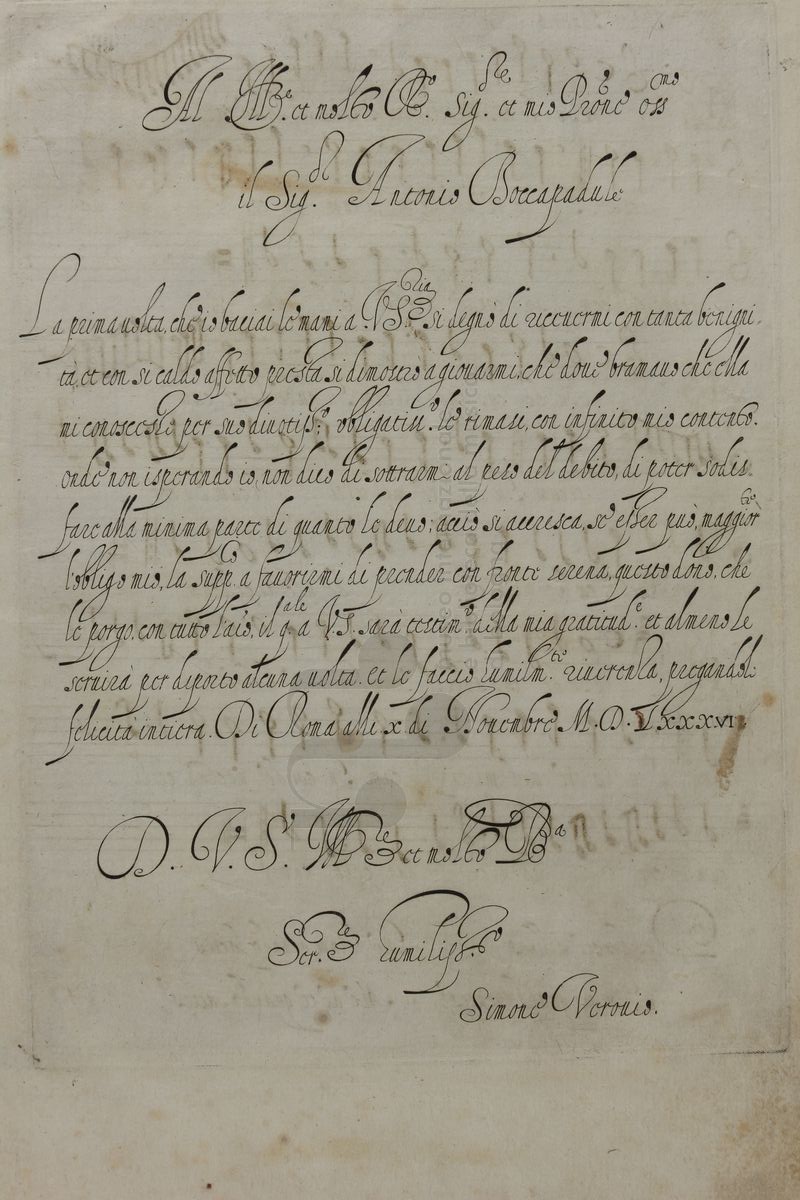 Al M.re et molto R.do Sig.re et mio Prone oss.mo
il Sig.r Antonio Boccapadule
La prima uolta, che io baciai le mani a V.S. si degnò di riceuermi con tanta benigni,
tà, et con si caldo affetto presta si dimostrò à giouarmi, che doue bramauo che ella
mi conoscesse per suo diuotiss.o obbligatiss.o le rimasi, con infinito mio contento.
onde non isperando io, non dico di sottrarmi al peso del debito, di poter sodis.
fare alla minima parte di quanto le deuo; acciò si accresca, se esser può, maggior
l'obligo mio, la supp.co a fauorirmi di prender con fronte serena, questo dono, che
le porgo, con tutto l'aīo, il q.ale a V.S. sarà testim.o della mia gratitud.e et almeno le
seruirà per diporto alcuna uolta. et le faccio humilm.te riuerenza, pregandole
felicità intiera. Di Roma alli .x. di Nouembre M.D.LXXXVII
D. V. S. M.re et molto R.da
Ser.re humiliss.o
Simone Verouio.